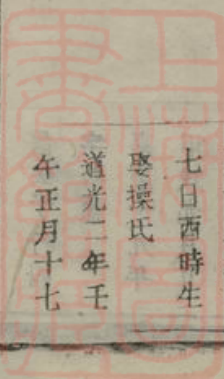 七日酉時生
娶操氏
道光二年壬
午正月十七